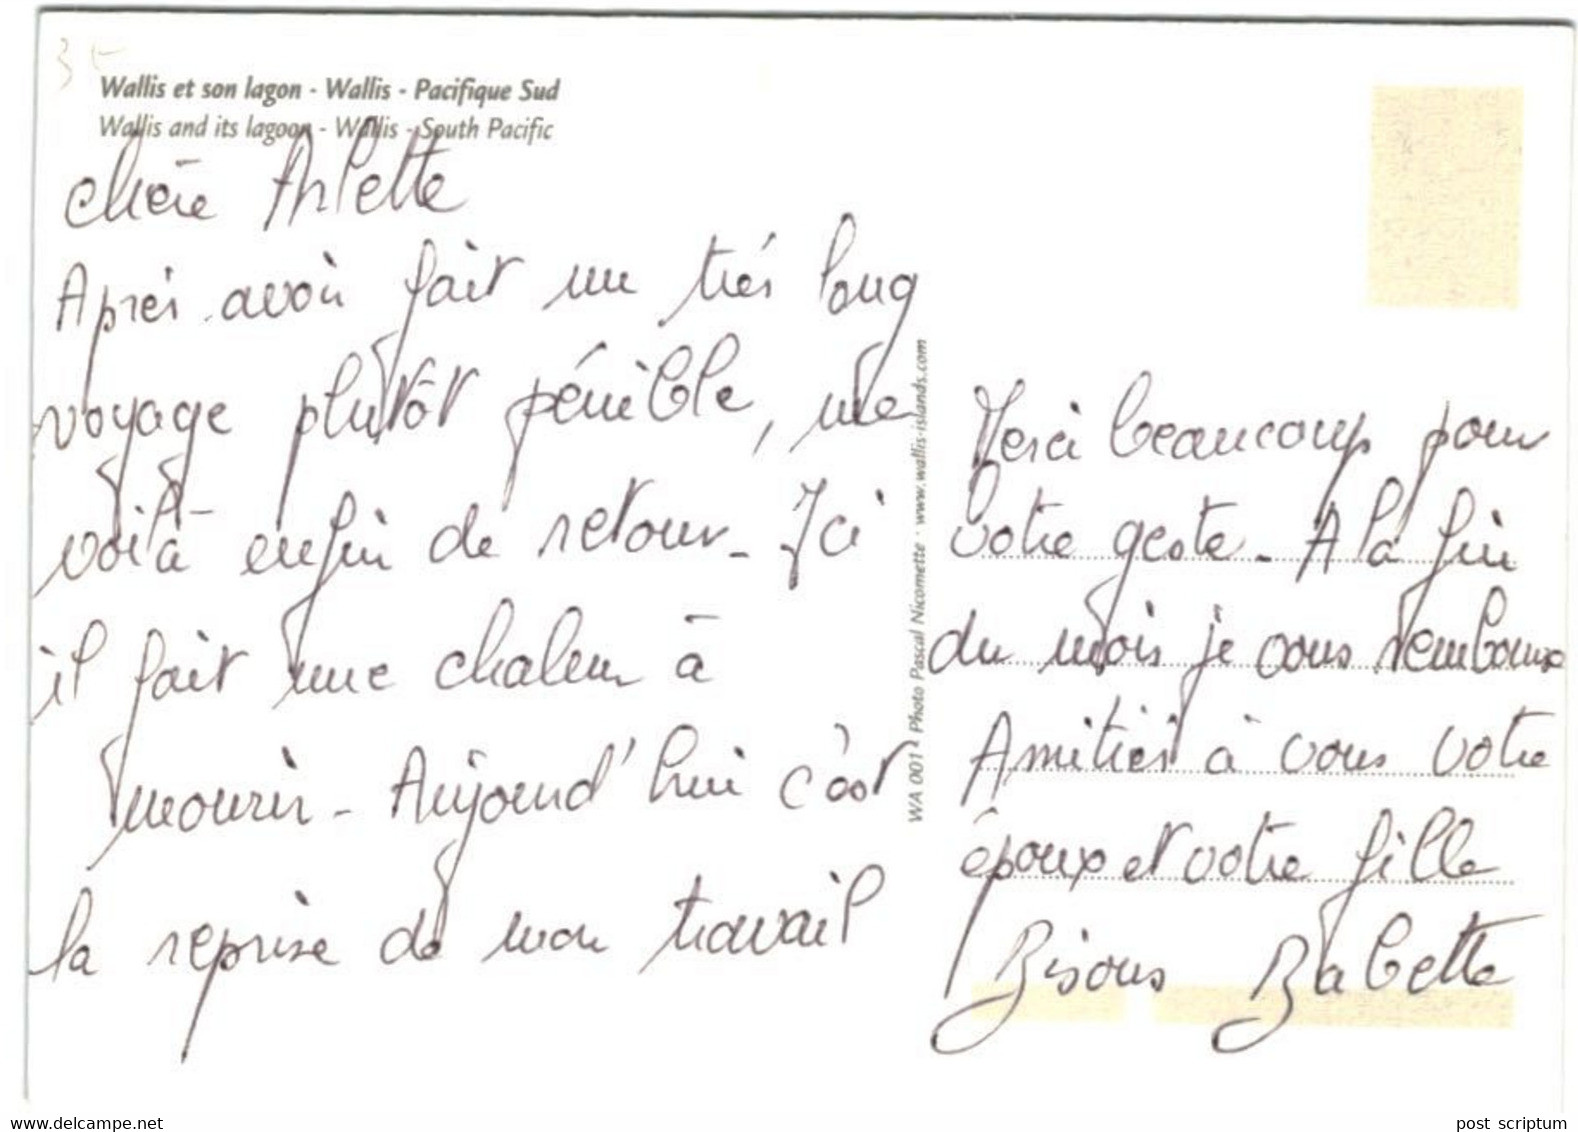 3€
Wallis et son lagon - Wallis - Pacifique Sud
Wallis and its lagoon - Wallis - South Pacific
Chère Arlette
Après avoir fait un très long
voyage plutôt pénible, me
voilà enfin de retour - Ici
il fait une chaleur à
mourir - Aujourd'hui c'est
la reprise de mon travail
WA 001 - Photo Pascal Nicomette · www.wallis-islands.com
Merci beaucoup pour
votre geste - A la fin
du mois je vous rembourse
Amitiés à vous votre
époux et votre fille
Bisous Babette
www.delcampe.net
post_scriptum